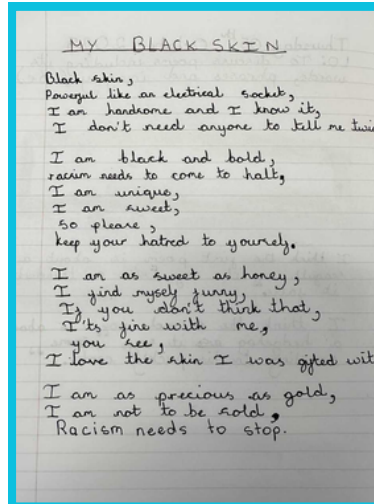 MY BLACK SKIN
Black skin,
Powerful like an electrical socket,
I am handsome and I know it,
I don't need anyone to tell me twic
I am black and bold,
racism needs to come to halt,
I am unique,
I am sweet,
so please,
keep your hatred to yourself.
I am as sweet as honey,
I find myself funny,
If you don't think that,
I'ts fine with me,
you see,
I love the skin I was gifted wit
I am as precious as gold,
I am not to be sold,
Racism needs to stop.